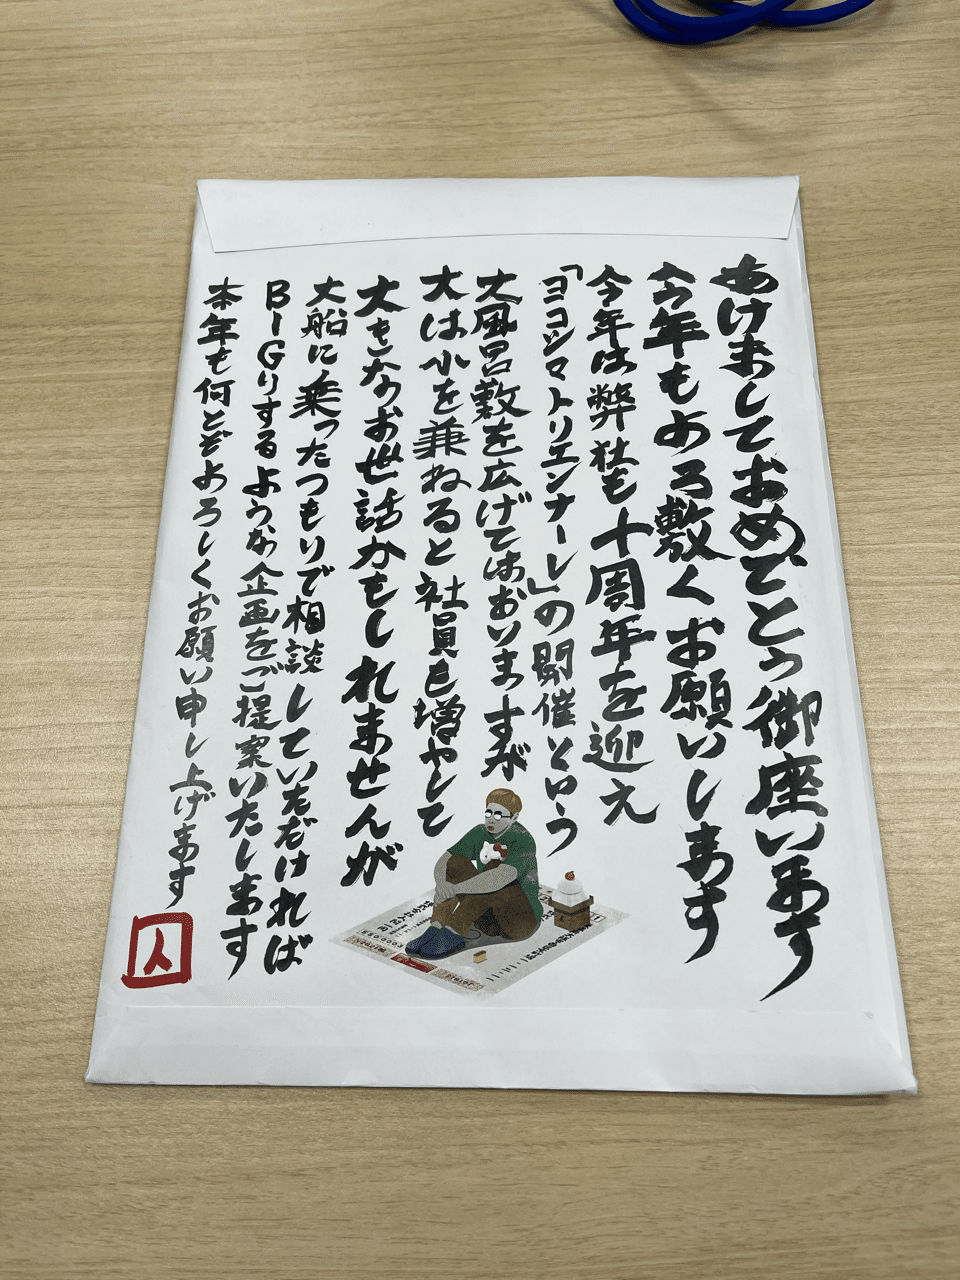 あけましておめでとう御座います
今年もよろ敷くお願いします
今年は弊社も十周年を迎え
「ヨコシマトリエンナーレ」の開催という
大風呂敷を広げてはおりますが
大は小を兼ねると社員も増やして
大きなお世話かもしれませんが
大船に乗ったつもりで相談していただければ
BIGりするような企画をご提案いたします
本年も何とぞよろしくお願い申し上げます
人